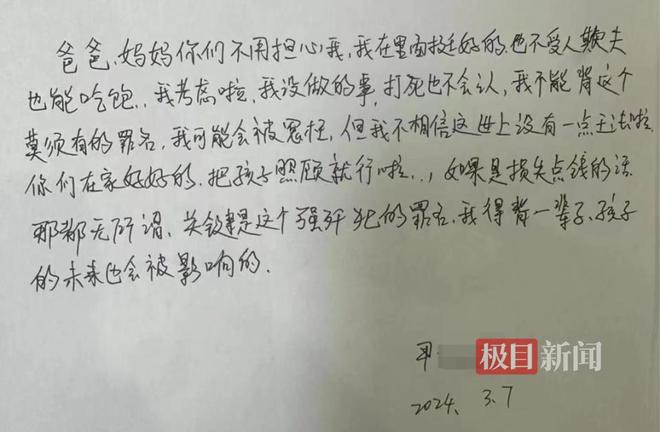 爸爸,妈妈你们不用担心我,我在里面挺好的.也不受人欺夫
也能吃饱..我考虑啦,我没做的事,打死也不会认,我不能背这个
莫须有的罪名,我可能会被冤枉,但我不相信这世上没有一点王法啦.
你们在家好好的.把孩子照顾就行啦..,如果是损失点钱的话
那都无所谓、关键是这个强歼犯的罪名.我得背一辈子、孩子
的未来也会被影响的.
极目新闻
2024. 3.7